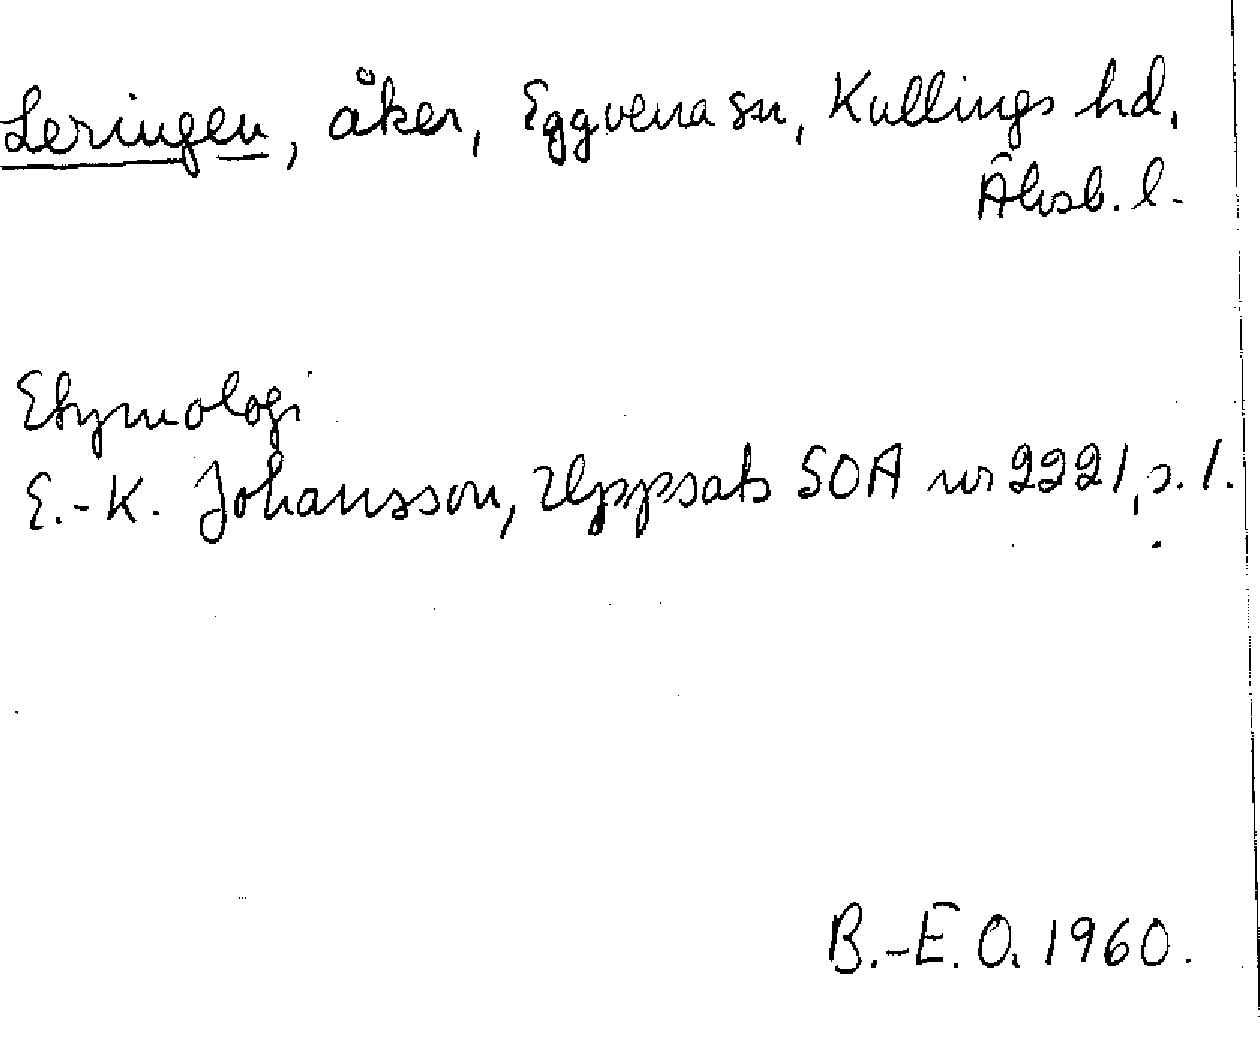 Leringen, åker, Eggvena sn, Kullings hd,
Älvsb. l.
Etymologi
E.-K. Johansson, Uppsats SOA nr 2221, s. 1.
B.-E. O. 1960.